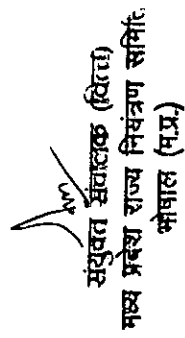 संयुक्त संचालक (वित्त)
मध्य प्रदेश राज्य नियंत्रण समिति
भोपाल (म.प्र.)